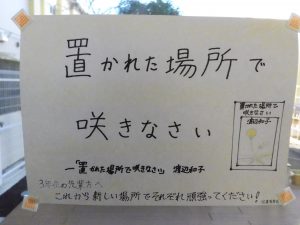 置かれた場所で
咲きなさい
─「置かれた場所で咲きなさい」 渡辺和子
置かれた場所で
咲きなさい
渡辺和子
3年生の先輩方へ
これから新しい場所でそれぞれ頑張ってください!